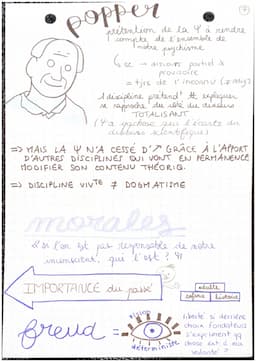 popper
prétention de la Ψ à rendre
compte de l'ensemble de
notre psychisme
↳ ce → savoirs partiel &
provisoire
tjrs de l'inconnu
1 discipline prétend tt expliquer
se rapproche du côté du discours
TOTALISANT
(Ψa psychose qui l'écarte du
discours scientifique)
=> MAIS LA Ψ N'A CESSÉ D'↗ GRÂCE À L'APPORT
D'AUTRES DISCIPLINES QUI VONT EN PERMANENCE
MODIFIER SON CONTENU THÉORIQ.
=> DISCIPLINE VIVTE ≠ DOGMATISME
morales
si l'on est pas responsable de notre
inconscient, qui l'est ?
IMPORTANCE du passé
adulte
enfance histoire
freud =
vision
déterministe
liberté si derrière
choix fondateurs
s'expriment qq
chose est à ma
volonté ?